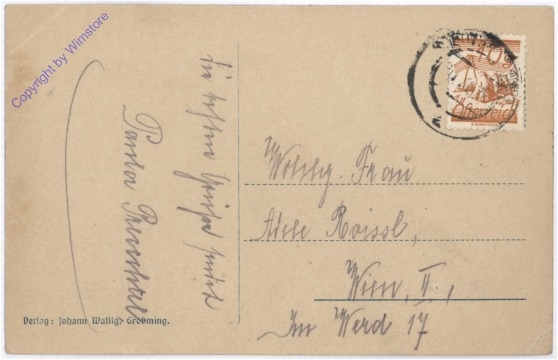 Copyright by Wimstore
Die besten Grüße sendet
Wohlg. Frau
Adele Roissl,
Wien, II.,
Im Werd 17
Verlag: Johann Wallig, Gröbming.